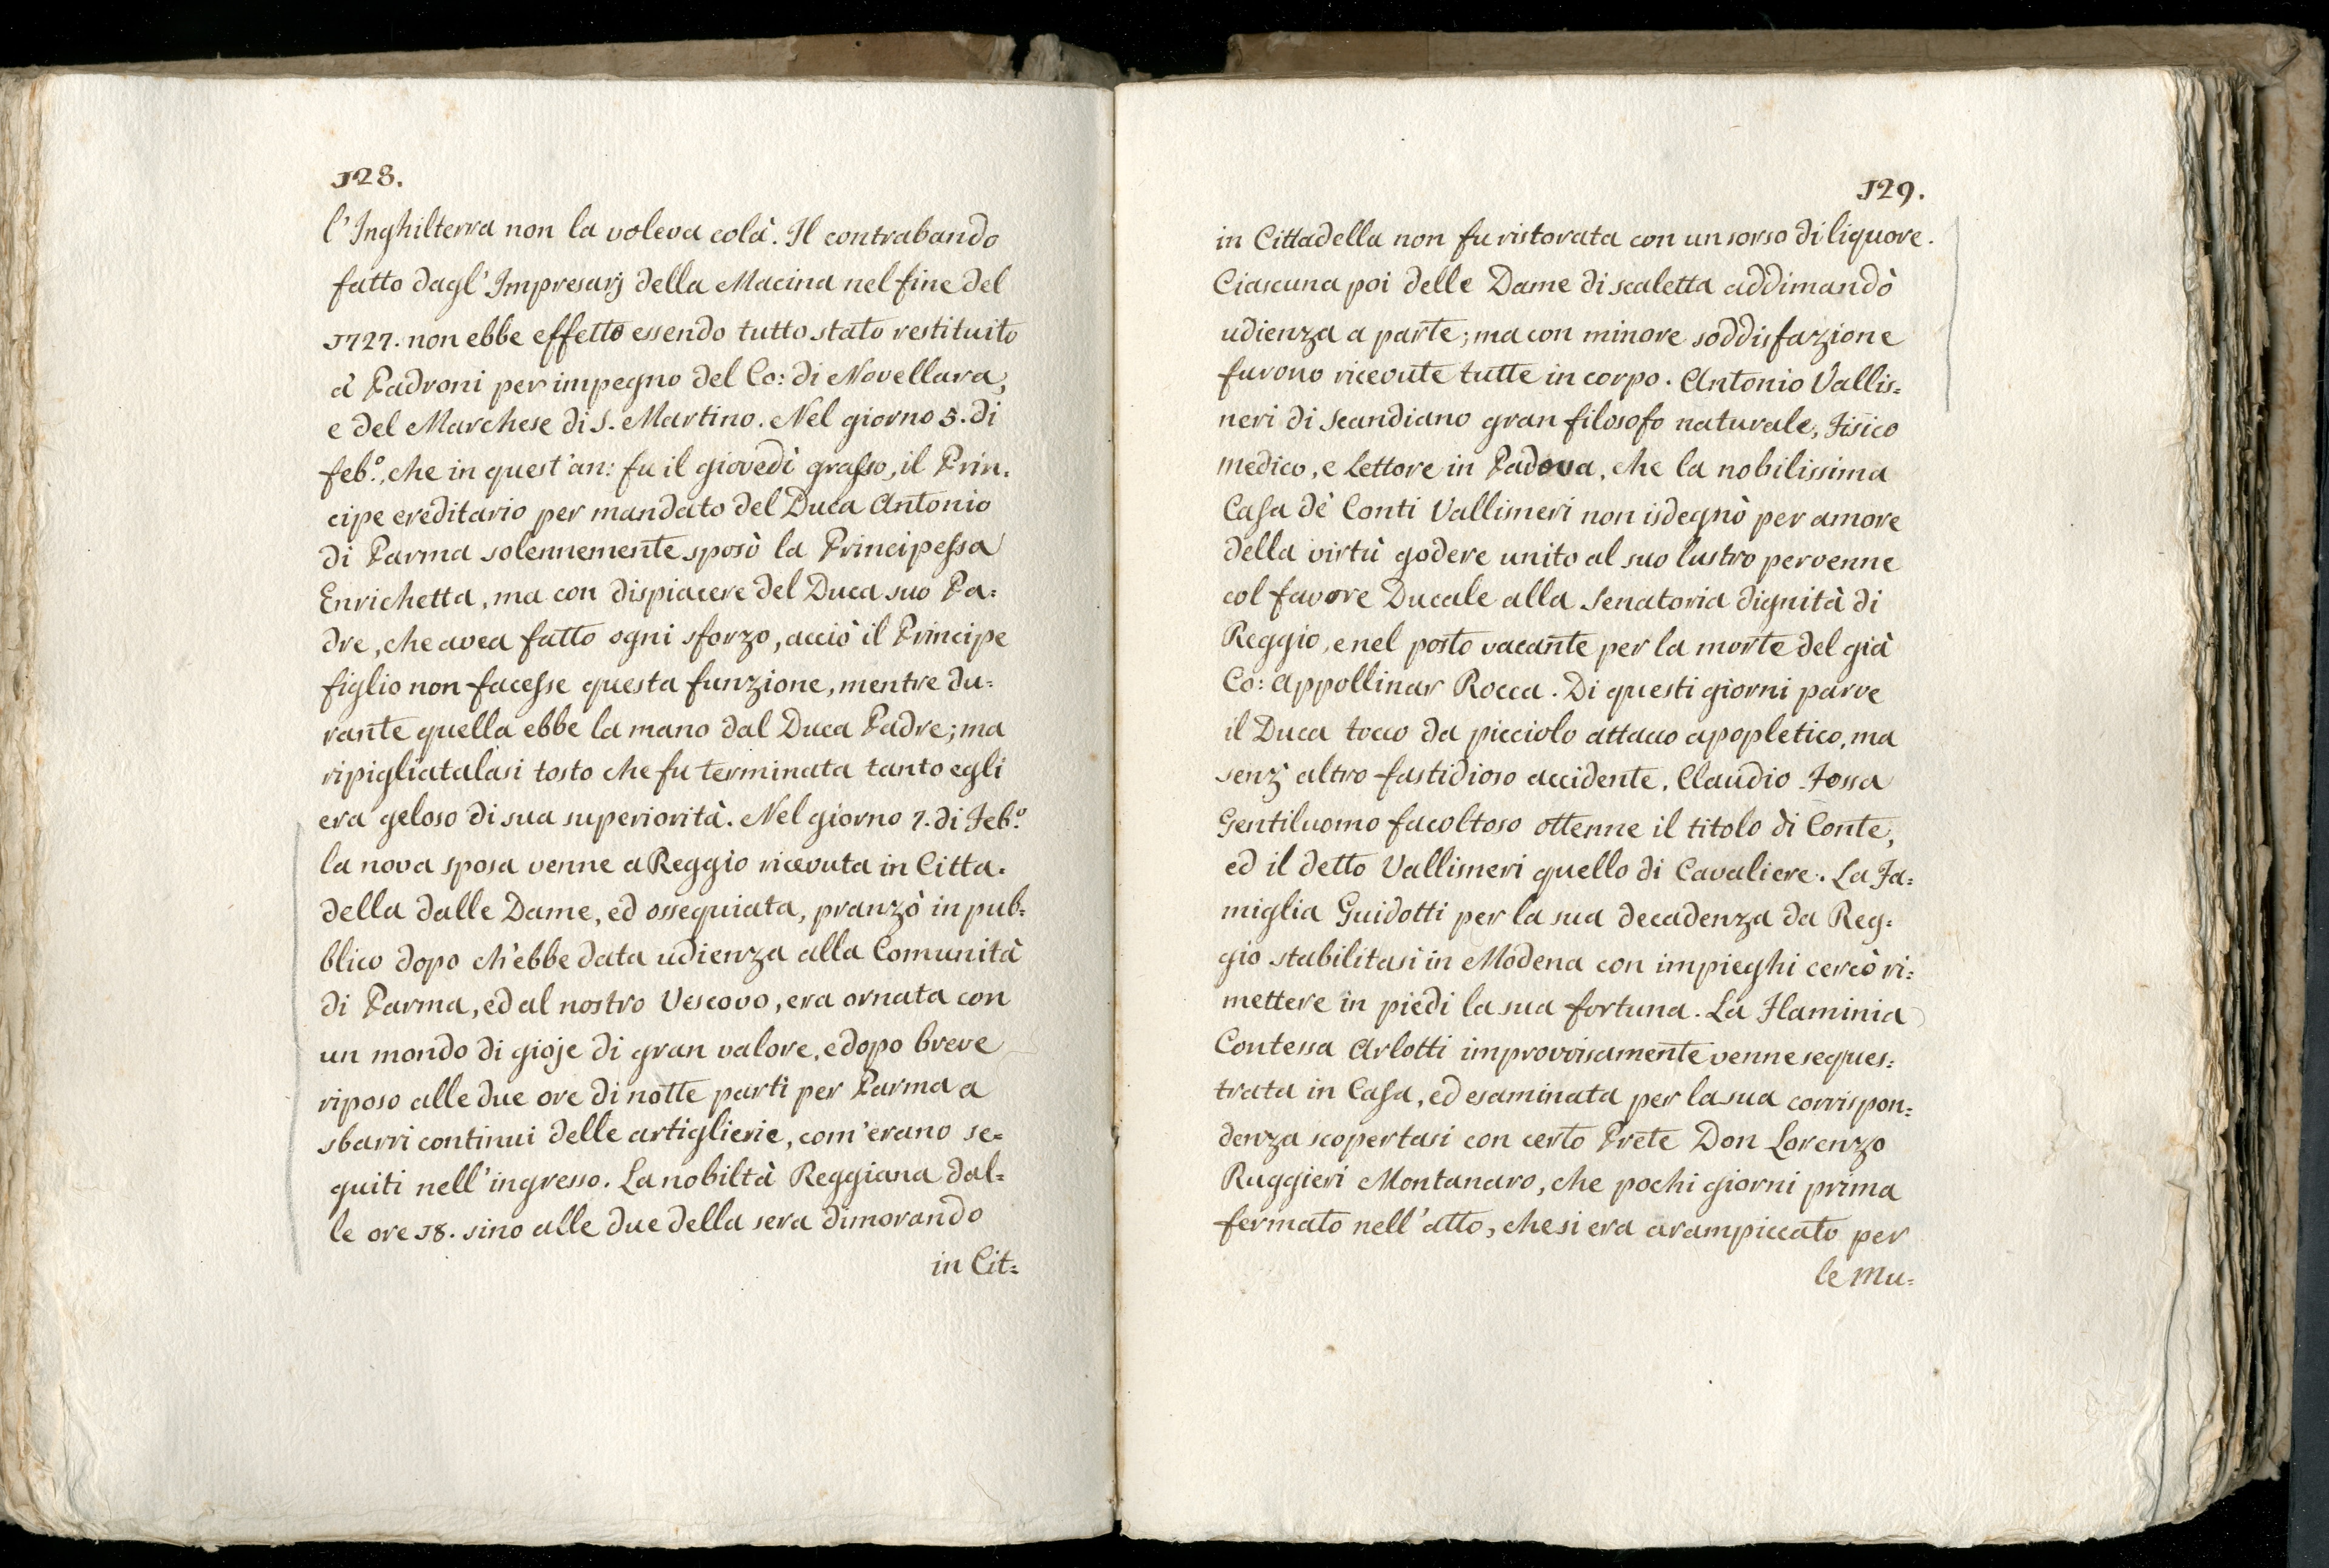 128.
l'Inghilterra non la voleva colà. Il contrabando
fatto dagl'Impresarj della Macina nel fine del
1727. non ebbe effetto essendo tutto stato restituito
à Padroni per impegno del Co: di Novellara,
e del Marchese di S. Martino. Nel giorno 5. di
feb.º, che in quest'an: fu il giovedì grasso, il Prin.
cipe ereditario per mandato del Duca Antonio
di Parma solennemente sposò la Principessa
Enrichetta, ma con dispiacere del Duca suo Pa=
dre, che avea fatto ogni sforzo, acciò il Principe
figlio non facesse questa funzione, mentre du=
rante quella ebbe la mano dal Duca Padre; ma
ripigliatalasi tosto che fu terminata tanto egli
era geloso di sua superiorità. Nel giorno 7. di Feb.º
la nova sposa venne a Reggio ricevuta in Citta.
della dalle Dame, ed ossequiata, pranzò in pub=
blico dopo ch'ebbe data udienza alla Comunità
di Parma, ed al nostro Vescovo, era ornata con
un mondo di gioje di gran valore, e dopo breve
riposo alle due ore di notte partì per Parma a
sbarri continui delle artiglierie, com'erano se=
guiti nell'ingresso. La nobiltà Reggiana dal=
le ore 18. sino alle due della sera dimorando
in Cit=
129.
in Cittadella non fu ristorata con un sorso di liquore.
Ciascuna poi delle Dame di scaletta addimandò
udienza a parte; ma con minore soddisfazione
furono ricevute tutte in corpo. Antonio Vallis=
neri di Scandiano gran filosofo naturale, Fisico
medico, e Lettore in Padova, che la nobilissima
Casa dè Conti Vallisneri non isdegnò per amore
della virtù godere unito al suo lustro pervenne
col favore Ducale alla Senatoria dignità di
Reggio, e nel posto vacante per la morte del già
Co: Appollinar Rocca. Di questi giorni parve
il Duca tocco da picciolo attacco apopletico, ma
senz'altro fastidioso accidente. Claudio Fossa
Gentiluomo facoltoso ottenne il titolo di Conte,
ed il detto Vallisneri quello di Cavaliere. La Fa=
miglia Guidotti per la sua decadenza da Reg=
gio stabilitasi in Modena con impieghi cercò ri=
mettere in piedi la sua fortuna. La Flaminia
Contessa Arlotti improvvisamente venne seques=
trata in Casa, ed esaminata per la sua corrispon=
denza scopertasi con certo Prete Don Lorenzo
Ruggieri Montanaro, che pochi giorni prima
fermato nell'atto, che si era arampiccato per
le Mu=